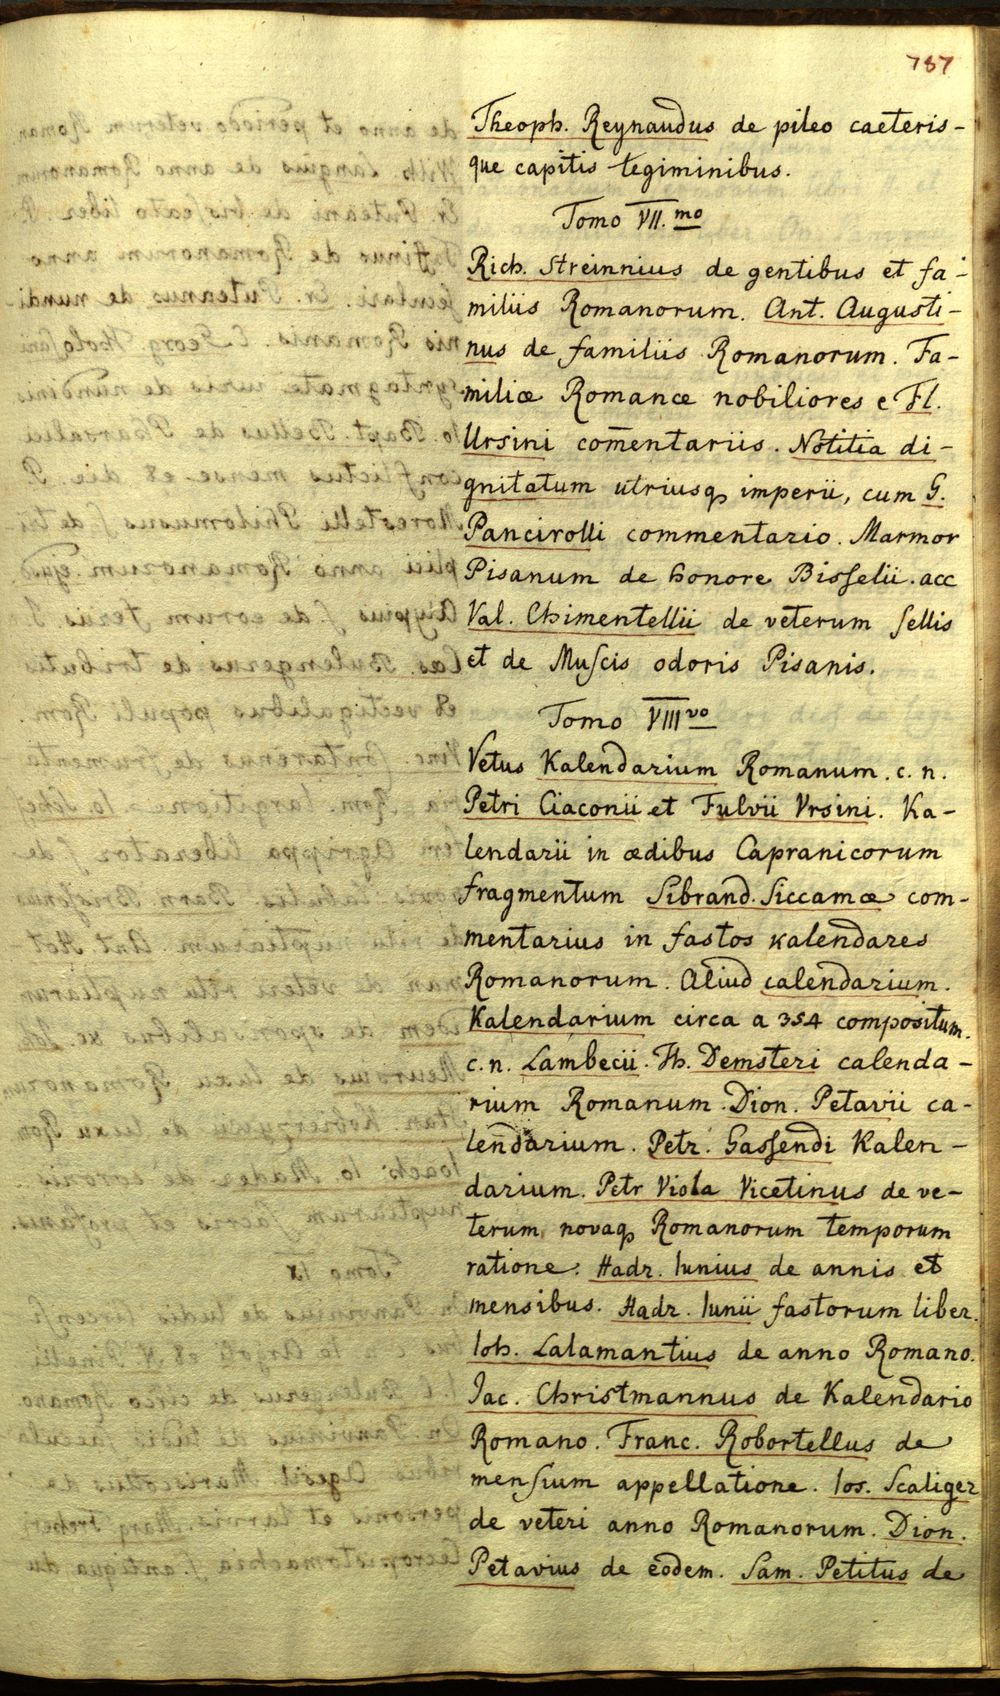 787
Theoph. Reynaudus de pileo caeteris-
que capitis tegiminibus.
Tomo VII.mo
Rich. Streinnius de gentibus et fa-
miliis Romanorum. Ant. Augusti-
nus de familiis Romanorum. Fa-
miliæ Romanæ nobiliores e Fl.
Ursini com̄entariis. Notitia di-
gnitatum utriusq. imperii, cum G.
Pancirolli commentario. Marmor
Pisanum de honore Bisselii. acc
Val. Chimentellii de veterum sellis
et de Muscis odoris Pisanis.
Tomo VIIIvo
Vetus Kalendarium Romanum. c. n.
Petri Ciaconii et Fulvii Vrsini. Ka-
lendarii in ædibus Capranicorum
fragmentum Sibrand. Siccamæ com-
mentarius in fastos kalendares
Romanorum. Aliud calendarium.
Kalendarium circa a 354 compositum.
c. n. Lambecii. Th. Demsteri calenda-
rium Romanum. Dion. Petavii ca-
lendarium. Petr. Gassendi Kalen-
darium. Petr Viola Vicetinus de ve-
terum, novaq. Romanorum temporum
ratione. Hadr. Iunius de annis et
mensibus. Hadr. Iunii fastorum liber.
Ioh. Lalamantius de anno Romano.
Iac. Christmannus de Kalendario
Romano. Franc. Robortellus de
mensium appellatione. Ios. Scaliger
de veteri anno Romanorum. Dion.
Petavius de eodem. Sam. Petitus de